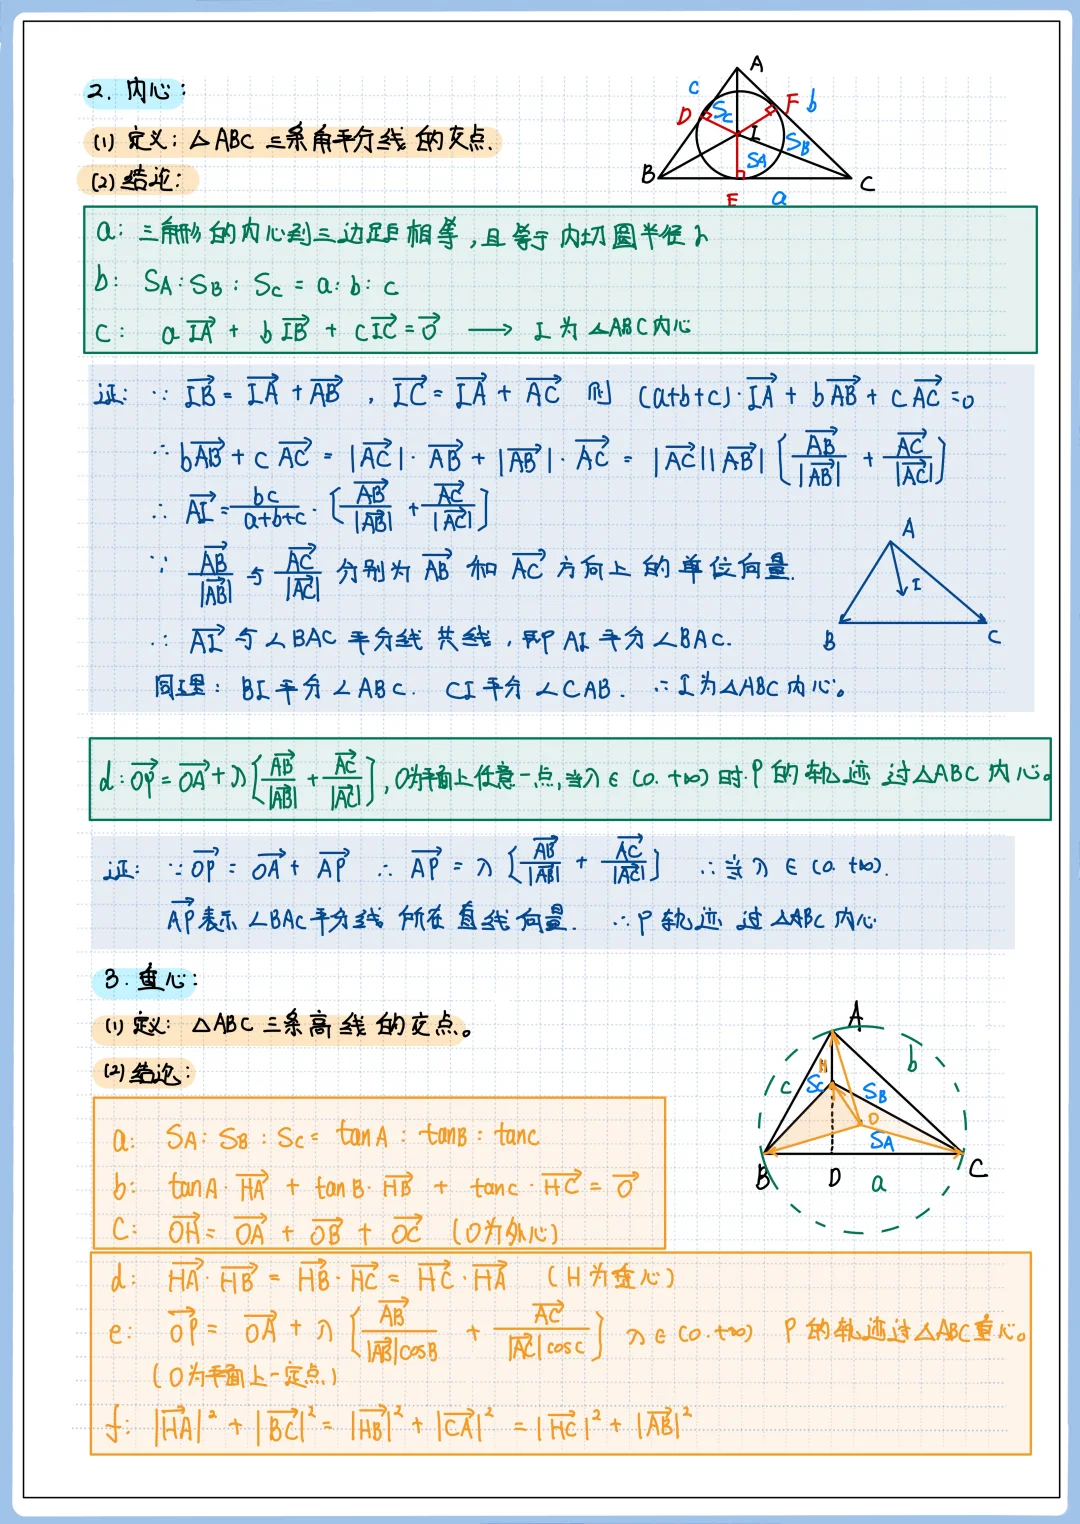 2. 内心:
(1) 定义: △ABC 三条角平分线的交点.
(2) 结论:
A
c
b
D
F
Sc
I
SB
SA
B
C
E
a
a: 三角形的内心到三边距离相等,且等于内切圆半径r
b: SA:SB:Sc = a:b:c
c: a\overrightarrow{IA} + b\overrightarrow{IB} + c\overrightarrow{IC} = \overrightarrow{0} ⟶ I 为 △ABC内心
证: ∵ \overrightarrow{IB} = \overrightarrow{IA} + \overrightarrow{AB} , \overrightarrow{IC} = \overrightarrow{IA} + \overrightarrow{AC} 则 (a+b+c)·\overrightarrow{IA} + b\overrightarrow{AB} + c\overrightarrow{AC} = 0
∵ b\overrightarrow{AB} + c\overrightarrow{AC} = |\overrightarrow{AC}|·\overrightarrow{AB} + |\overrightarrow{AB}|·\overrightarrow{AC} = |\overrightarrow{AC}||\overrightarrow{AB}| [\frac{\overrightarrow{AB}}{|\overrightarrow{AB}|} + \frac{\overrightarrow{AC}}{|\overrightarrow{AC}|}]
∴ \overrightarrow{AI} = \frac{bc}{a+b+c}·[\frac{\overrightarrow{AB}}{|\overrightarrow{AB}|} + \frac{\overrightarrow{AC}}{|\overrightarrow{AC}|}]
∵ \frac{\overrightarrow{AB}}{|\overrightarrow{AB}|} 与 \frac{\overrightarrow{AC}}{|\overrightarrow{AC}|} 分别为 \overrightarrow{AB} 和 \overrightarrow{AC} 方向上的单位向量.
∴ \overrightarrow{AI} 与∠BAC平分线共线, 即AI平分∠BAC.
同理: BI平分∠ABC. CI平分∠CAB. ∴ I为△ABC内心。
A
I
B
C
d: \overrightarrow{OP} = \overrightarrow{OA} + λ[\frac{\overrightarrow{AB}}{|\overrightarrow{AB}|} + \frac{\overrightarrow{AC}}{|\overrightarrow{AC}|}], O为平面上任意一点,当λ∈(0.+∞)时.P的轨迹过△ABC内心。
证: ∵ \overrightarrow{OP} = \overrightarrow{OA} + \overrightarrow{AP} ∴ \overrightarrow{AP} = λ[\frac{\overrightarrow{AB}}{|\overrightarrow{AB}|} + \frac{\overrightarrow{AC}}{|\overrightarrow{AC}|}] ∴当λ∈(0.+∞).
\overrightarrow{AP}表示∠BAC平分线所在直线向量. ∴P轨迹过△ABC内心
3. 垂心:
(1) 定义: △ABC三条高线的交点。
(2) 结论:
A
H
b
c
Sc
SB
O
SA
B
D
a
C
a: SA:SB:Sc = tanA:tanB:tanc
b: tanA·\overrightarrow{HA} + tanB·\overrightarrow{HB} + tanc·\overrightarrow{HC} = \overrightarrow{0}
C: \overrightarrow{OH} = \overrightarrow{OA} + \overrightarrow{OB} + \overrightarrow{OC} (O为外心)
d: \overrightarrow{HA}·\overrightarrow{HB} = \overrightarrow{HB}·\overrightarrow{HC} = \overrightarrow{HC}·\overrightarrow{HA} (H为垂心)
e: \overrightarrow{OP} = \overrightarrow{OA} + λ[\frac{\overrightarrow{AB}}{|\overrightarrow{AB}|cosB} + \frac{\overrightarrow{AC}}{|\overrightarrow{AC}|cosC}] λ∈(0.+∞) P的轨迹过△ABC垂心。
(O为平面上一定点)
f: |\overrightarrow{HA}|² + |\overrightarrow{BC}|² = |\overrightarrow{HB}|² + |\overrightarrow{CA}|² = |\overrightarrow{HC}|² + |\overrightarrow{AB}|²